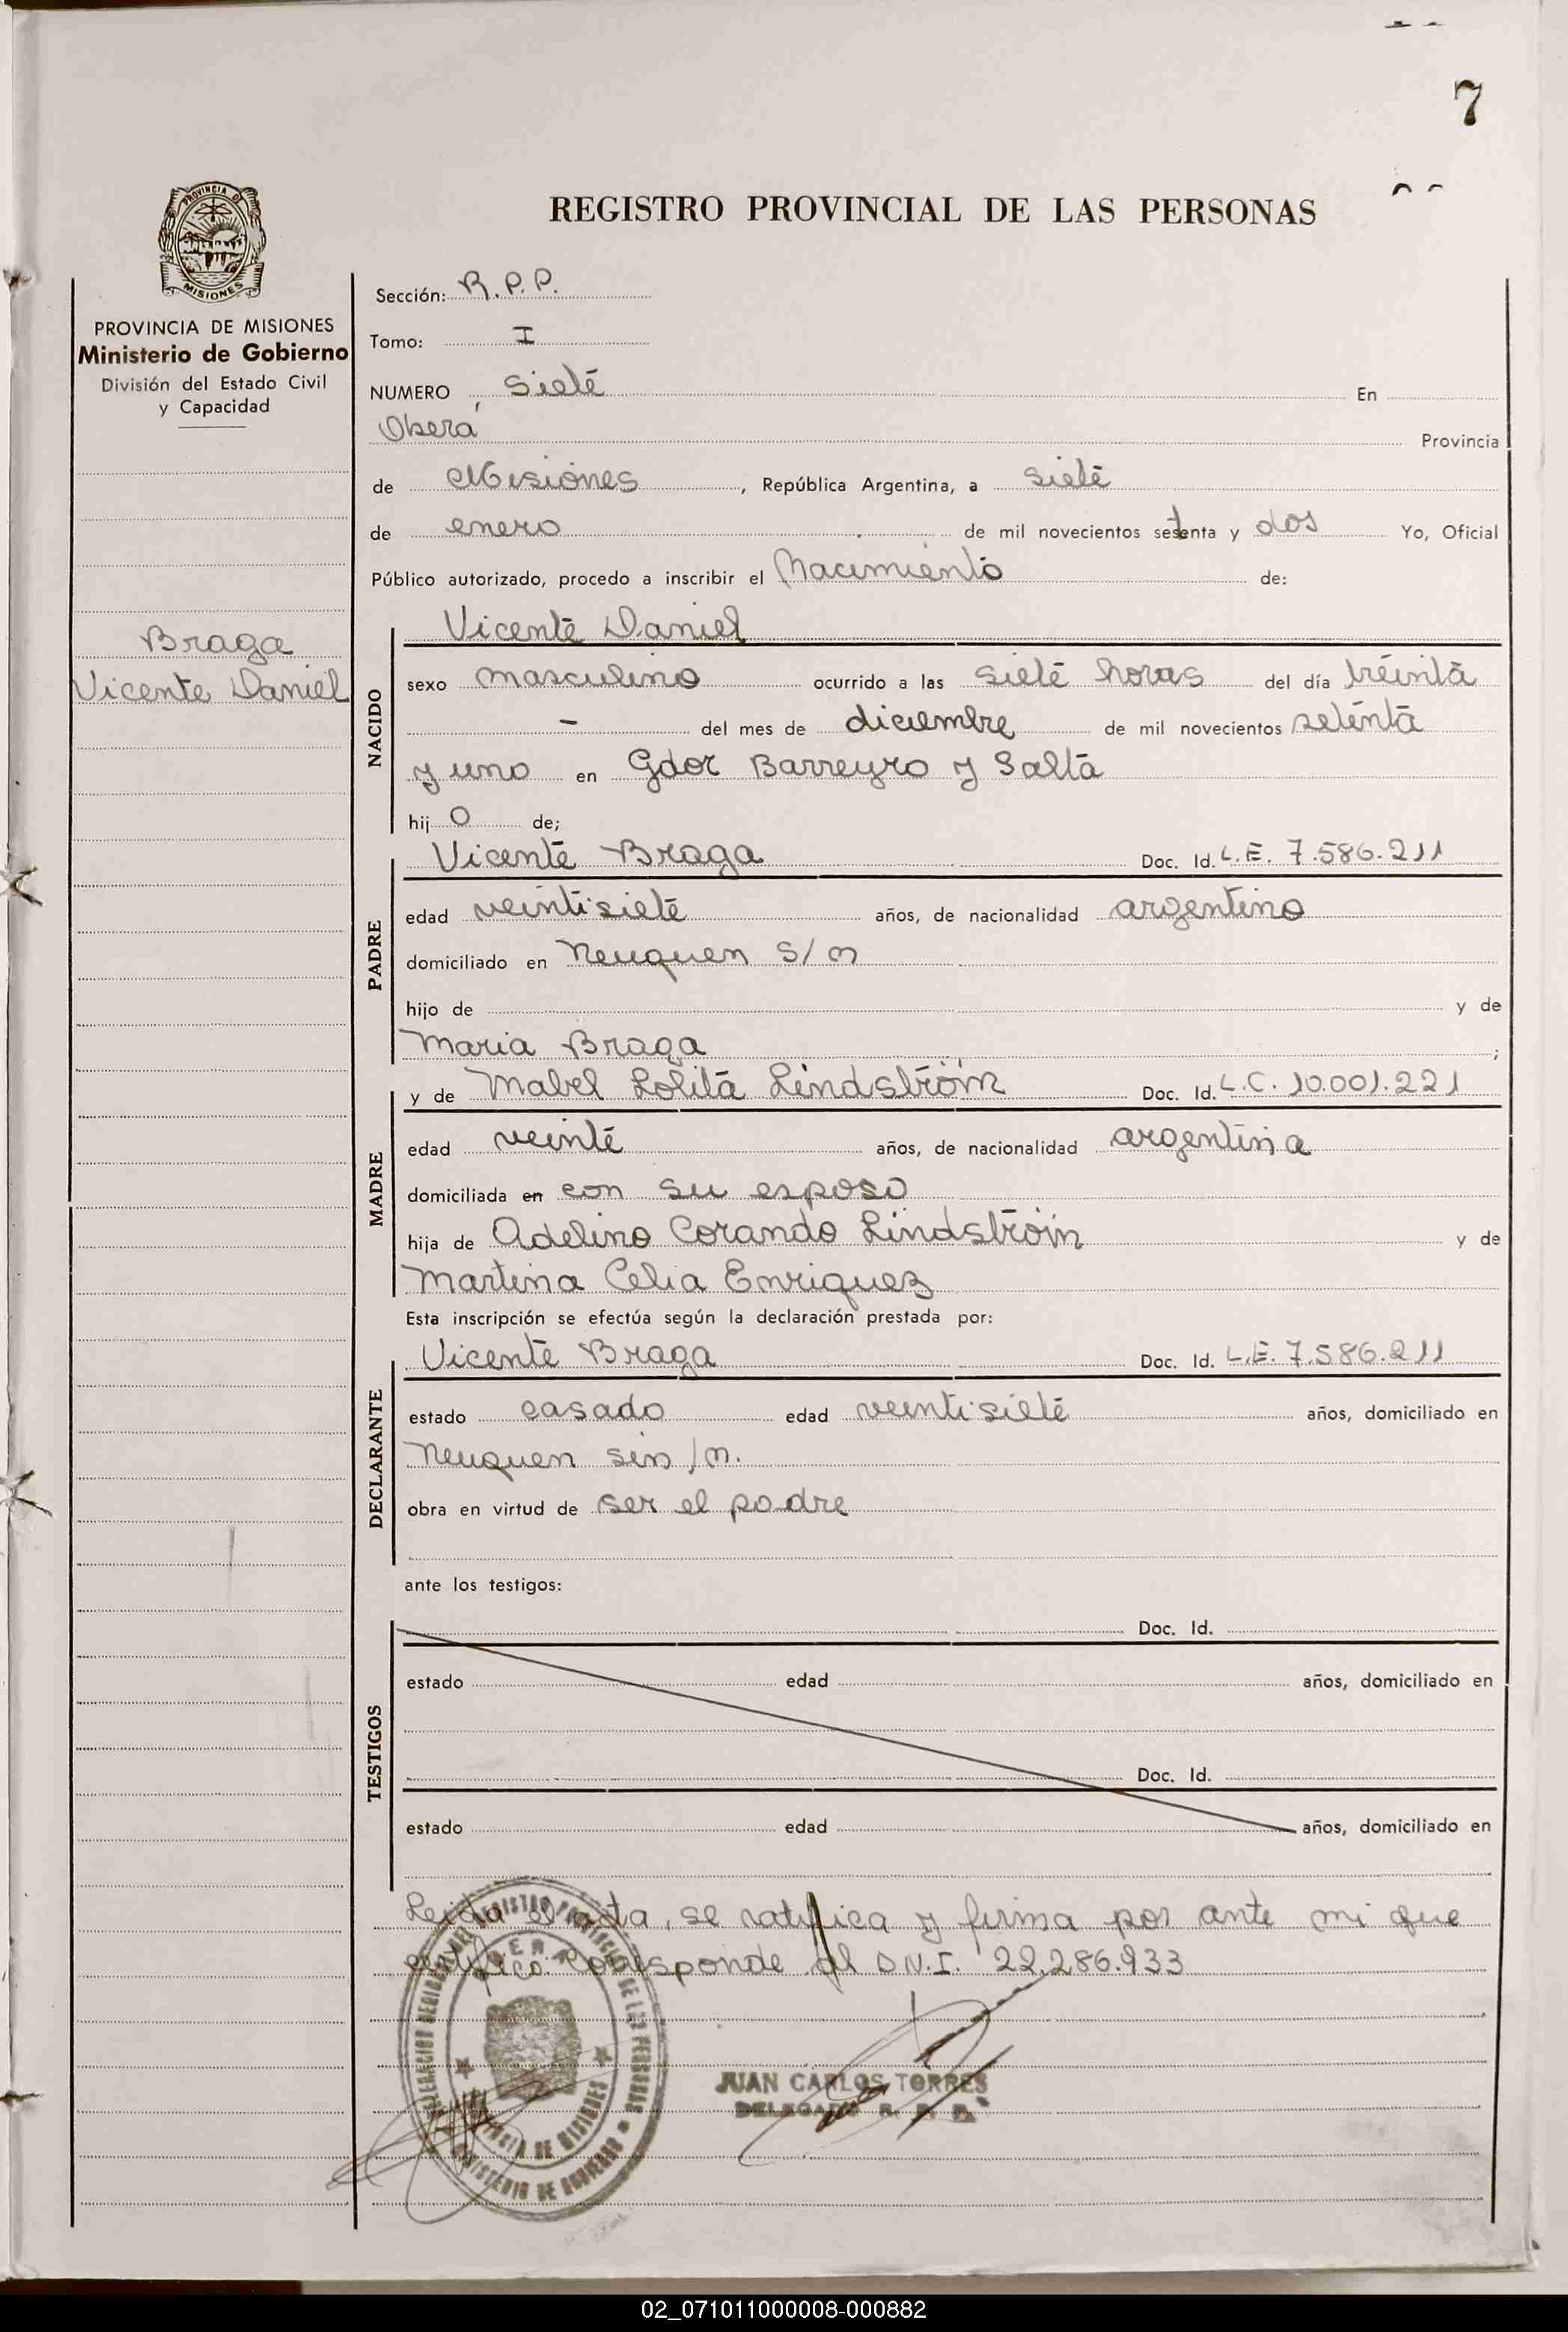 7
REGISTRO PROVINCIAL DE LAS PERSONAS
PROVINCIA DE
MISIONES
PROVINCIA DE MISIONES
Ministerio de Gobierno
División del Estado Civil
y Capacidad
Braga
Vicente Daniel
Sección: R.P.P.
Tomo: I
NUMERO siete En
Oberá Provincia
de Misiones, República Argentina, a siete
de enero de mil novecientos setenta y dos Yo, Oficial
Público autorizado, procedo a inscribir el Nacimiento de:
NACIDO
Vicente Daniel
sexo masculino ocurrido a las siete horas del día treinta
- del mes de diciembre de mil novecientos setenta
y uno en Gdor Barreyro y Salta
hij o de;
PADRE
Vicente Braga Doc. Id. L.E. 7.586.211
edad veintisiete años, de nacionalidad argentino
domiciliado en Neuquen S/n
hijo de y de
Maria Braga ;
MADRE
y de Mabel Lolita Lindström Doc. Id. L.C. 10.001.221
edad veinte años, de nacionalidad argentina
domiciliada en con su esposo
hija de Adelino Corando Lindström y de
Martina Celia Enriquez
Esta inscripción se efectúa según la declaración prestada por:
DECLARANTE
Vicente Braga Doc. Id. L.E. 7.586.211
estado casado edad veintisiete años, domiciliado en
Neuquen sin/n.
obra en virtud de ser el padre
ante los testigos:
TESTIGOS
Doc. Id.
estado edad años, domiciliado en
Doc. Id.
estado edad años, domiciliado en
Leida el acta, se ratifica y firma por ante mi que
certifico. Corresponde al D.N.I. 22.286.933
JUAN CARLOS TORRES
DELEGADO R. P. P.
PROVINCIA DE MISIONES
MINISTERIO DE GOBIERNO
02_071011000008-000882